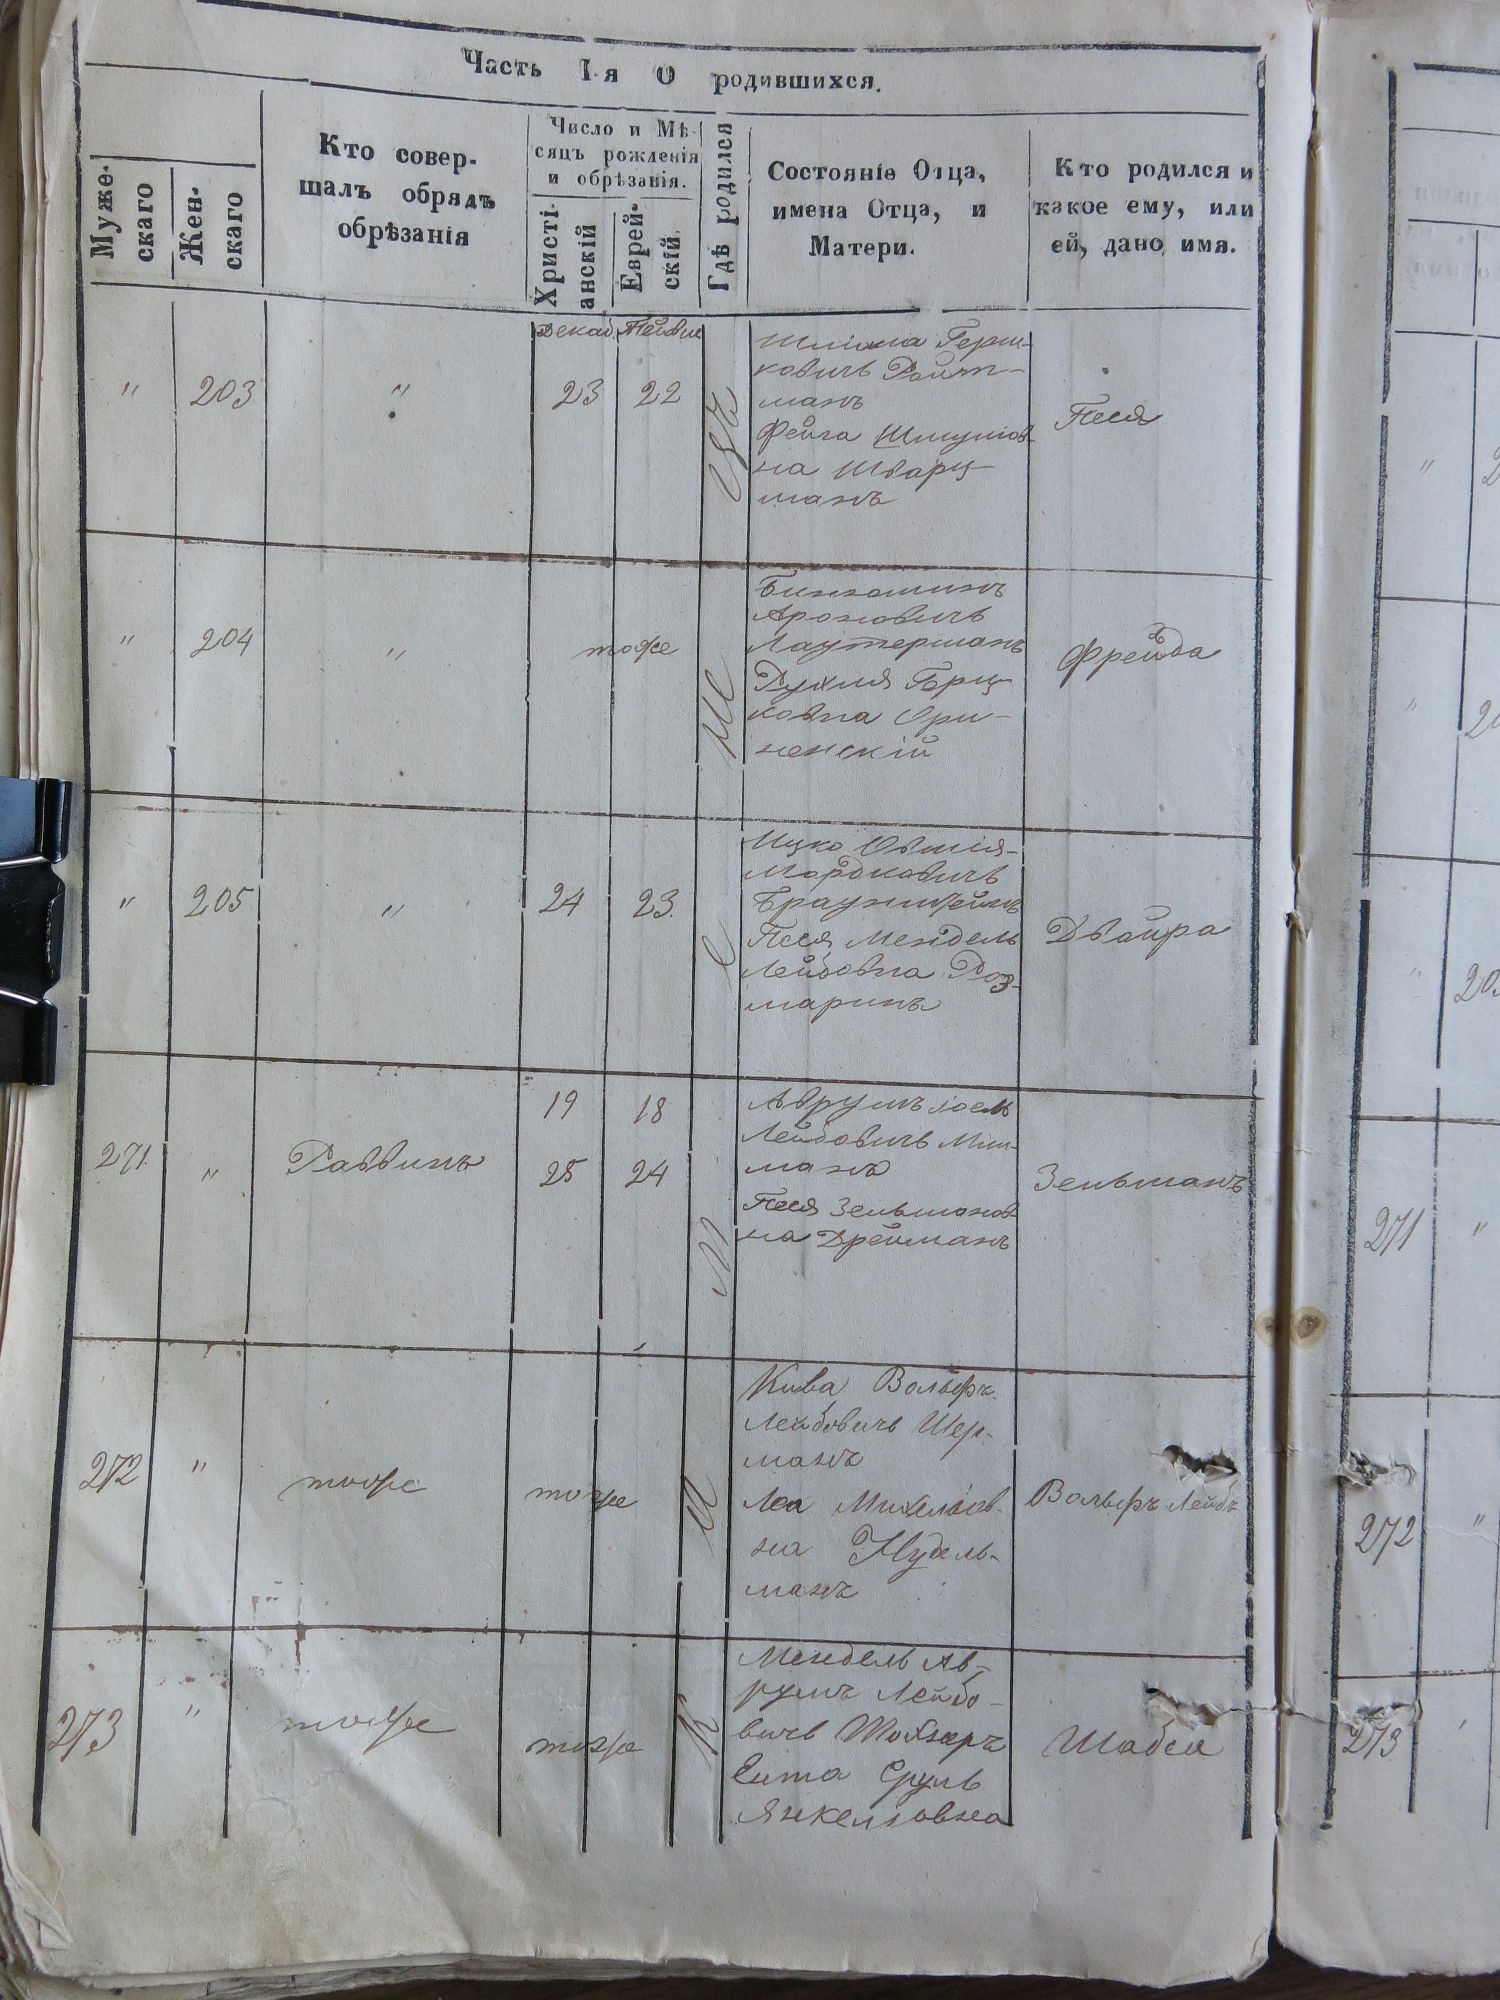 Часть 1я О родившихся.
Муже-
скаго
Жен-
скаго
Кто совер-
шалъ обрядъ
обрѣзанія
Число и Мѣ-
сяцъ рожденія
и обрѣзанія.
Христі-
анскій
Еврей-
скій
Гдѣ родился
Состояніе Отца,
имена Отца, и
Матери.
Кто родился и
какое ему, или
ей, дано имя.
Декаб. Тейвис
" 203 " 23 22
Шліома Герш-
ковичъ Ройт-
манъ
Фейга Шмулов-
на Шварц-
манъ
Песя
" 204 " тоже
Биньоминъ
Ароновичъ
Лаутерманъ
Рухля Герш-
ковна Ори-
ненскій
Фрейда
" 205 " 24 23
Ицко Овшія-
Мордковичъ
Песя Мендель
Лейбовна Роз-
маринъ
Двойра
19 18
271 " Раввинъ 25 24
Аврумъ Іоель
Лейбовичъ
манъ
Песя Зельманов-
на Дрейманъ
Зельманъ
272 " тоже тоже
Кива Вольфъ
Лейбовичъ Шер-
манъ
Леа Михельов-
на Нудель-
манъ
Вольфъ Лейбъ
273 " тоже тоже
Мендель Ав-
румъ Лейбо-
вичъ
Ента Сруль
Янкельовна
Шабса
271 "
272 "
273